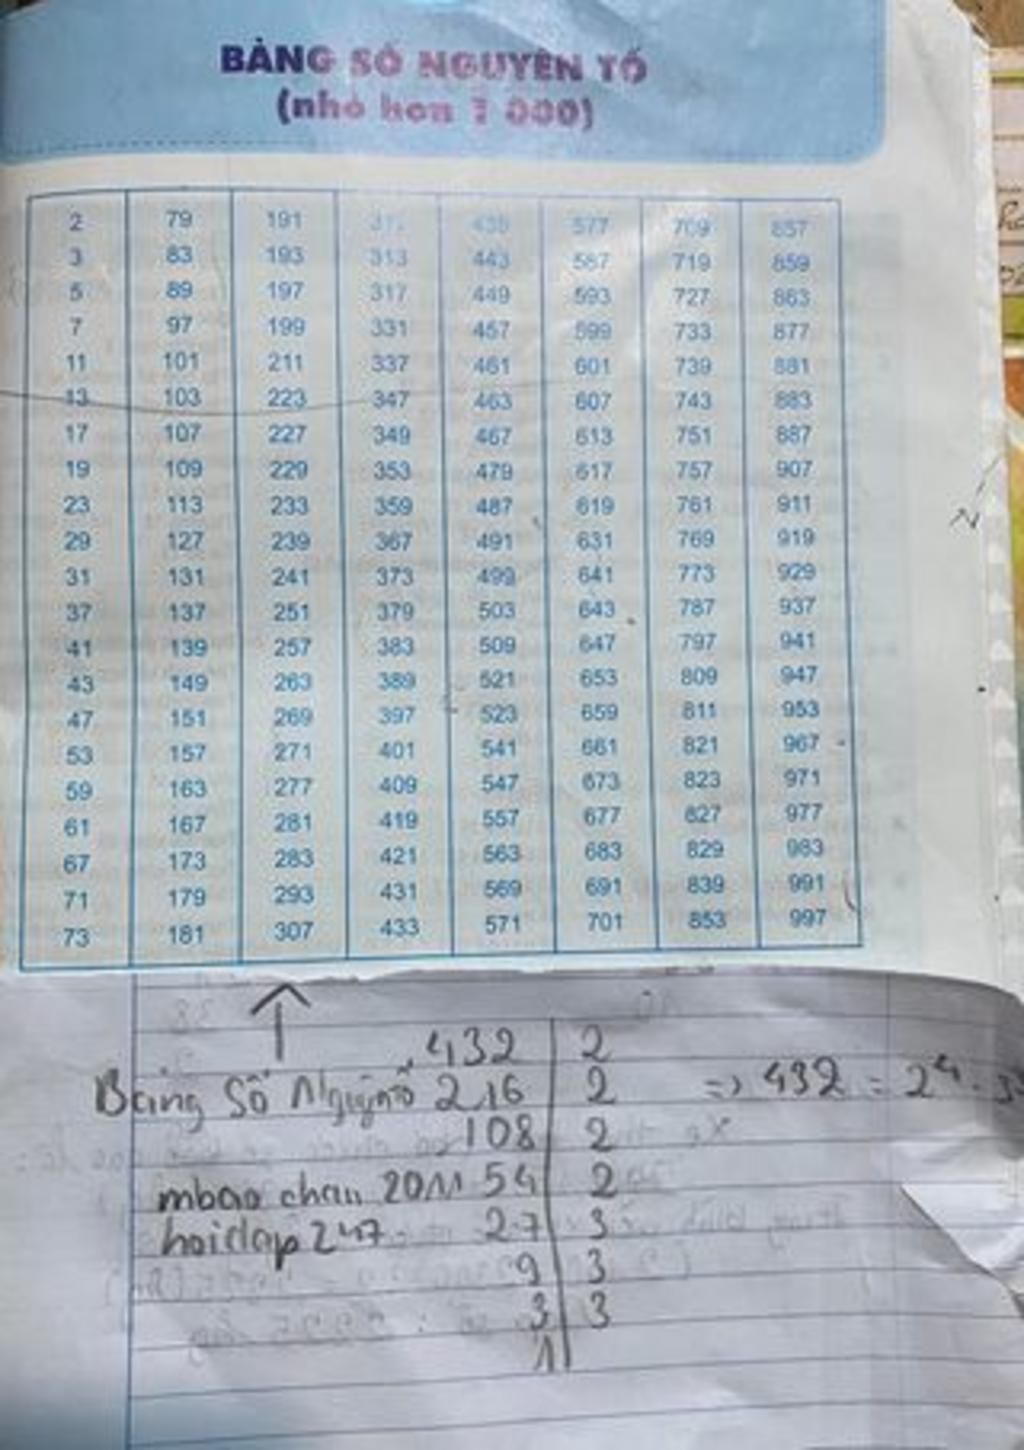 BẢNG SỐ NGUYÊN TỐ
(nhỏ hơn 1 000)
2 79 191 311 439 577 709 857
3 83 193 313 443 587 719 859
5 89 197 317 449 593 727 863
7 97 199 331 457 599 733 877
11 101 211 337 461 601 739 881
13 103 223 347 463 607 743 883
17 107 227 349 467 613 751 887
19 109 229 353 479 617 757 907
23 113 233 359 487 619 761 911
29 127 239 367 491 631 769 919
31 131 241 373 499 641 773 929
37 137 251 379 503 643 787 937
41 139 257 383 509 647 797 941
43 149 263 389 521 653 809 947
47 151 269 397 523 659 811 953
53 157 271 401 541 661 821 967
59 163 277 409 547 673 823 971
61 167 281 419 557 677 827 977
67 173 283 421 563 683 829 983
71 179 293 431 569 691 839 991
73 181 307 433 571 701 853 997
432 2
Bảng Số Nguyên Tố 216 2 => 432 = 2⁴ . 3³
108 2
mbao chau 2011 54 2
hoidap247 27 3
9 3
3 3
1